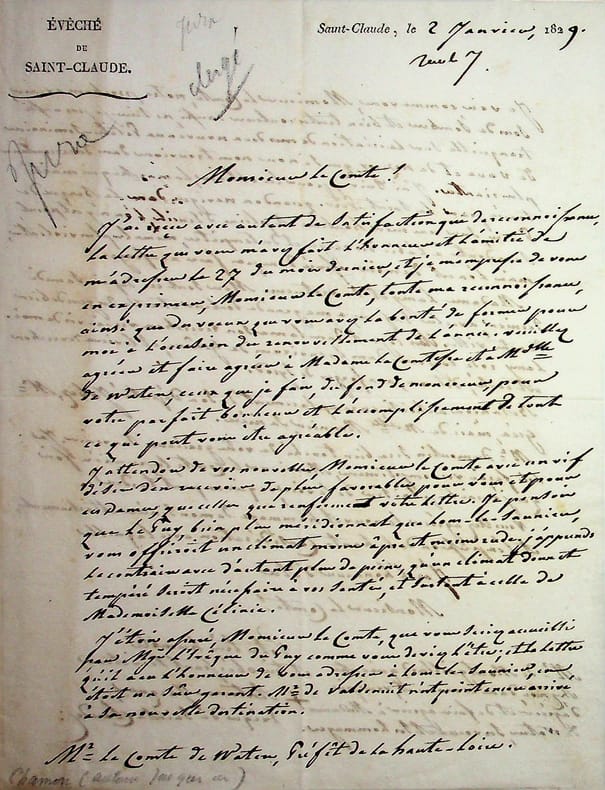 ÉVÊCHÉ
DE
SAINT-CLAUDE.
Jura
clergé
Jura
Saint-Claude, le 2 Janvier, 1829.
Monsieur le Comte!
J'ai reçu avec autant de satisfaction que de reconnoissance,
la lettre que vous m'avez fait l'honneur et l'amitié de
m'adresser le 27 du mois dernier, et je m'empresse de vous
en exprimer, Monsieur le Comte, toute ma reconnoissance,
ainsi que des voeux que vous avez la bonté de former pour
moi à l'occasion du renouvellement de l'année. veuillez
agréer et faire agréer à Madame la Comtesse et à Mdlle
de Waters, ceux que je fais, du fond de mon coeur, pour
votre parfait bonheur et l'accomplissement de tout
ce qui peut vous être agréable.
J'attendois de vos nouvelles, Monsieur le Comte avec un vif
désir d'en recevoir de plus favorables pour vous et pour
ces dames, que celles que renferment votre lettre. Je pensois
que le Puy bien plus méridionnal que Lons-le-Saunier,
vous offriroit un climat moins âpre et moins rude; j'apprends
le contraire avec d'autant plus de peine, qu'un climat doux et
tempéré seroit nécessaire à vos santés, et surtout à celle de
Mademoiselle Célinie.
J'étois assuré Monsieur le Comte, que vous seriez accueilli
par Mgr. l'Evêque du Puy comme vous deviez l'être; et la lettre
qu'il eut l'honneur de vous adresser à Lons-le-Saunier, en
étoit un sûr garant. Mr. de Valdenuit n'est point encore arrivé
à sa nouvelle destination.
Mr. le Comte de Waters, Préfêt de la haute-Loire.
Chamon (antoine jacques de)